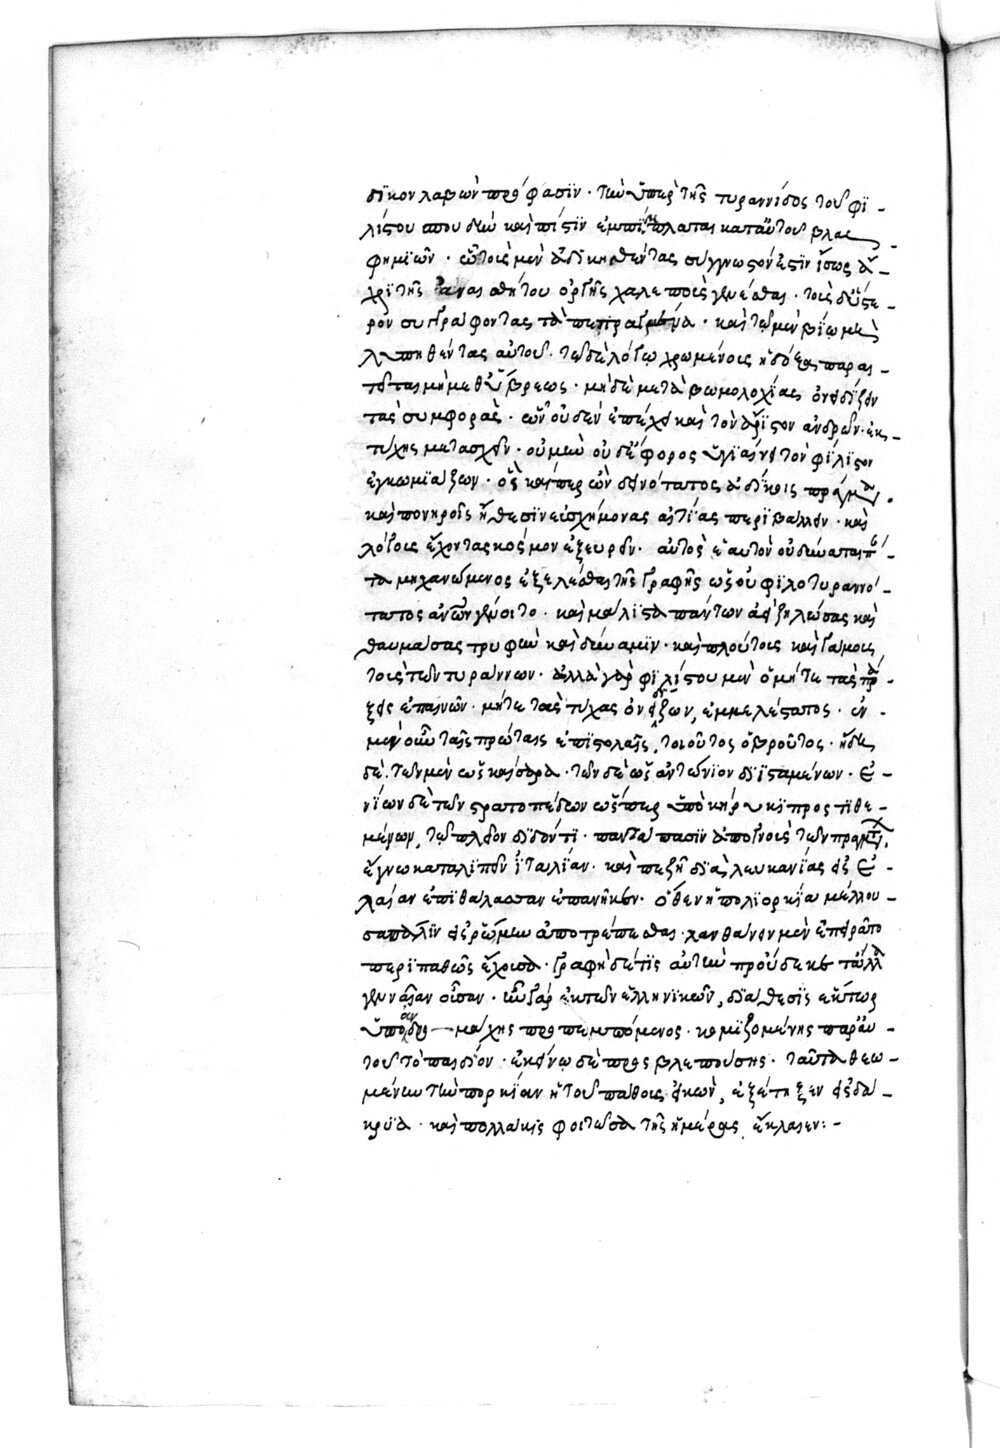 δίκον λαβὼν πρόφασϊν · τὴν ὑπὲρ τῆς τυραννίδος τοῦ φϊ-
λίστου σπουδὴν καὶ πίστϊν ἐμπίπλαται κατ' αὐτοῦ βλασ-
φημϊῶν · ὧ τοῖς μὲν ἀδικηθέντας συγγνωστόν ἐστϊν ἴσως ἄ-
χρϊ τῆς ἀναισθήτου ὀργῆς χαλεποῖς γενέσθαι · τοῖς δ' ὕστε-
ρον συγγράφοντας τὰ πεπραγμένα · καὶ τῷ μὲν βίῳ μὴ
λυπηθέντας αὐτοῦ · τῷ δὲ λόγῳ χρωμένοις ἡ δόξα παραι-
τεῖται μὴ μεθ' ὕβρεως · μηδὲ μετὰ βωμολοχίας ὀνειδίζειν
τὰς συμφορὰς · ὧν οὐδὲν ἐπέχει καὶ τὸν ἄριστον ἀνδρῶν · ἐκ
τύχης μετασχεῖν · οὐ μὴν οὐδ' ἔφορος ὑγϊαίνει τὸν φίλϊστον
ἐγκωμϊάζων · ὃς καίπερ ὢν δεινότατος ἀδίκοις πράγμασι
καὶ πονηροῖς ἤθεσϊν εὐσχήμονας αἰτίας περϊβάλλειν · καὶ
λόγους ἔχοντας κόσμον ἐξευρεῖν · αὐτὸς ἑαυτὸν οὐ δύναται πάν-
τα μηχανώμενος ἐξελέσθαι τῆς γραφῆς ὡς οὐ φϊλοτυραννό-
τατος ἀνθρώπων γένοιτο · καὶ μάλϊστα πάντων ἀεὶ ζηλώσας καὶ
θαυμάσας τρυφὴν καὶ δύναμϊν · καὶ πλούτους καὶ γάμους
τοὺς τῶν τυράννων · ἀλλὰ γὰρ φϊλίστου μὲν ὁ μήτε τὰς πρά-
ξεις ἐπαινῶν · μήτε τὰς τύχας ὀνειδίζων, ἐμμελέστατος · ἐν
μὲν οὖν ταῖς πρώταις ἐπϊστολαῖς, τοιοῦτος ὁ βροῦτος · ἤδη
δὲ τῶν μὲν ὡς καίσαρα · τῶν δὲ ὡς ἀντώνϊον διϊσταμένων · ὠ-
νίων δὲ τῶν στρατοπέδων ὥσπερ ὑπὸ κήρυκϊ προστϊθε-
μένων, τῷ πλεῖον δϊδόντϊ · παντάπασϊν ἀπογνοὺς τῶν πραγμάτων,
ἔγνω καταλϊπεῖν ἰταλίαν · καὶ πεζῇ δϊὰ λευκανίας εἰς ἐ-
λαίαν ἐπϊ θάλασσαν ἐπανῆκεν · ὅθεν ἡ πορκία μέλλου-
σα πάλϊν εἰς ῥώμην ἀποτρέπεσθαι · λανθάνειν μὲν ἐπειρᾶτο
περϊπαθῶς ἔχουσα · γραφὴ δέ τϊς αὐτὴν προὔδωκε τἄλλα
γενναίαν οὖσαν · ἦν γὰρ ἐκ τῶν ἑλληνϊκῶν, δϊάθεσϊς ἕκτωρ
ὑπὸ ἀνδρομάχης προπεμπόμενος · κομϊζομένης παρ' αὐ-
τοῦ τὸ παιδίον · ἐκείνῳ δὲ προσβλεπούσης · ταῦτα θεω-
μένην τὴν πορκίαν ἡ τοῦ πάθους εἰκὼν, ἐξέτηξεν εἰς δά-
κρυα · καὶ πολλάκις φοιτῶσα τῆς ἡμέρας, ἔκλαιεν : -